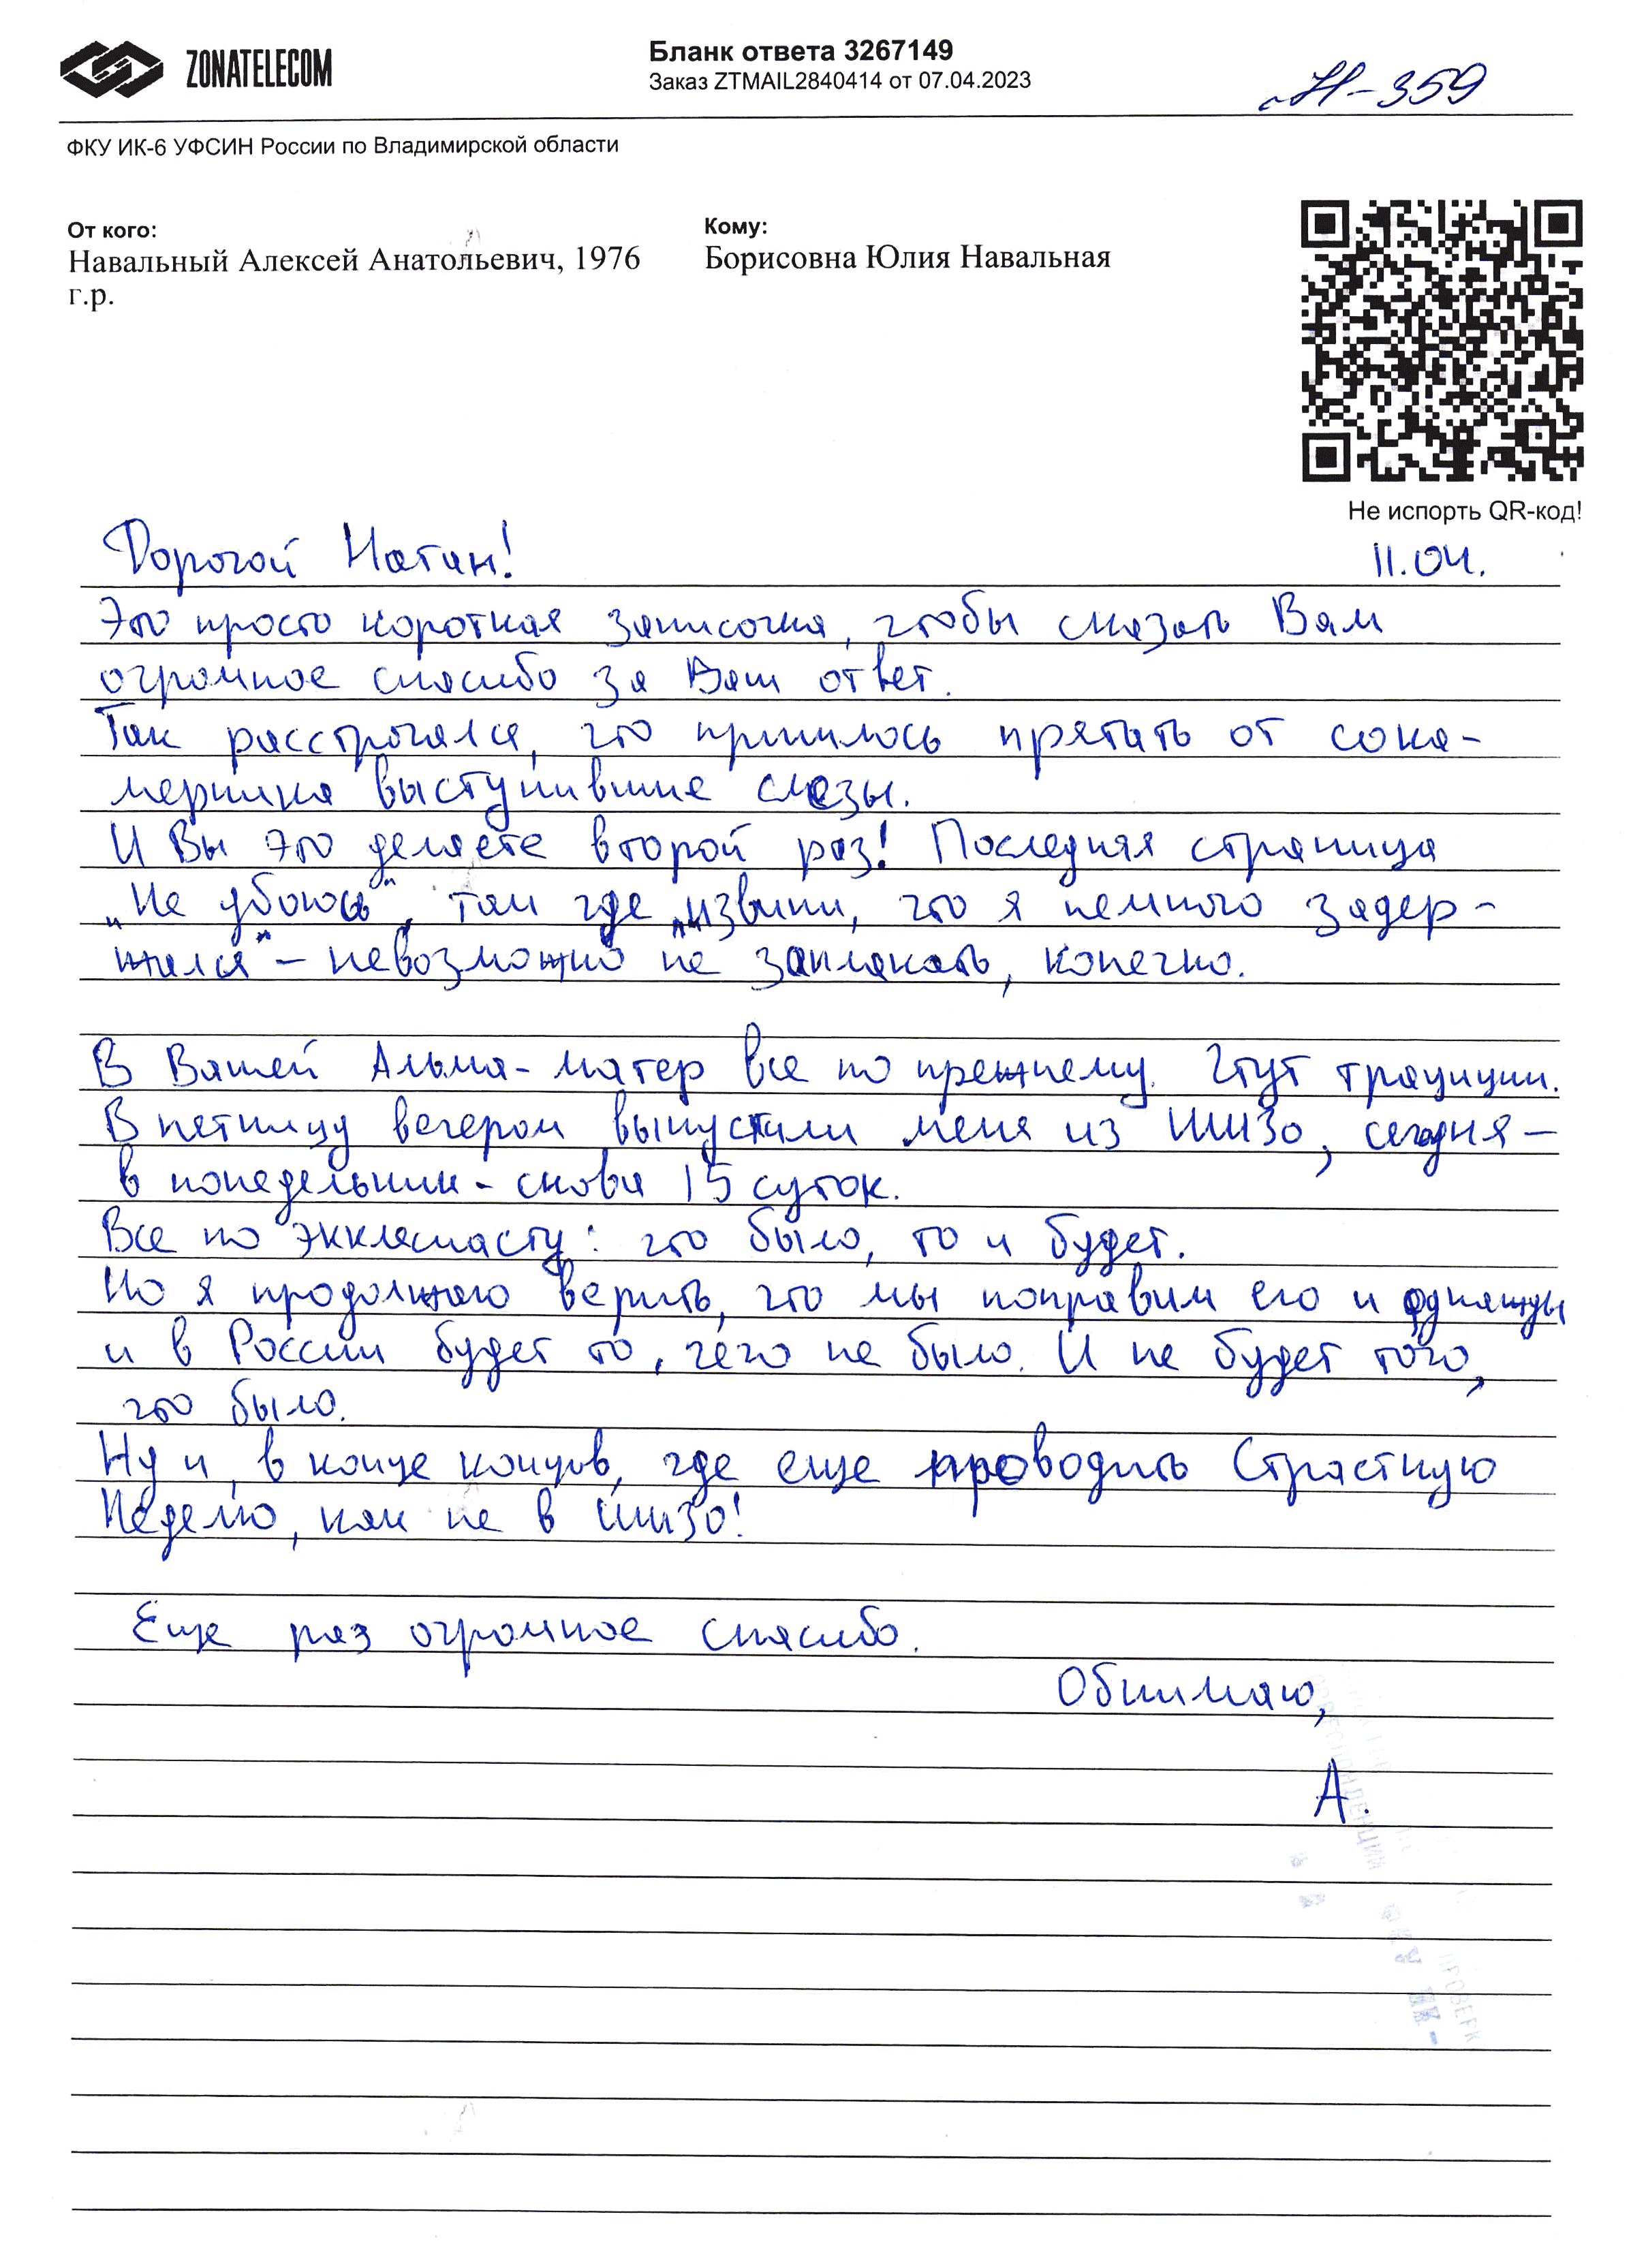 ZONATELECOM
Бланк ответа 3267149
Заказ ZTMAIL2840414 от 07.04.2023
Н-359
ФКУ ИК-6 УФСИН России по Владимирской области
От кого:
Навальный Алексей Анатольевич, 1976
г.р.
Кому:
Борисовна Юлия Навальная
Не испорть QR-код!
Дорогой Натан!
11.04.
Это просто короткая записочка, чтобы сказать Вам
огромное спасибо за Ваш ответ.
Так расстрогался, что пришлось прятать от сока-
мерника выступившие слезы.
И Вы это делаете второй раз! Последняя страница
„Не убоюсь", там где „извини, что я немного задер-
жался" – невозможно не заплакать, конечно.
В Вашей Альма-матер все по прежнему. Чтут традиции.
В пятницу вечером выпустили меня из ШИЗО, сегодня –
в понедельник – снова 15 суток.
Все по Экклесиасту: что было, то и будет.
Но я продолжаю верить, что мы поправим его и однажды
и в России будет то, чего не было. И не будет того,
что было.
Ну и, в конце концов, где еще проводить Страстную
Неделю, как не в ШИЗО!
Еще раз огромное спасибо.
Обнимаю,
А.